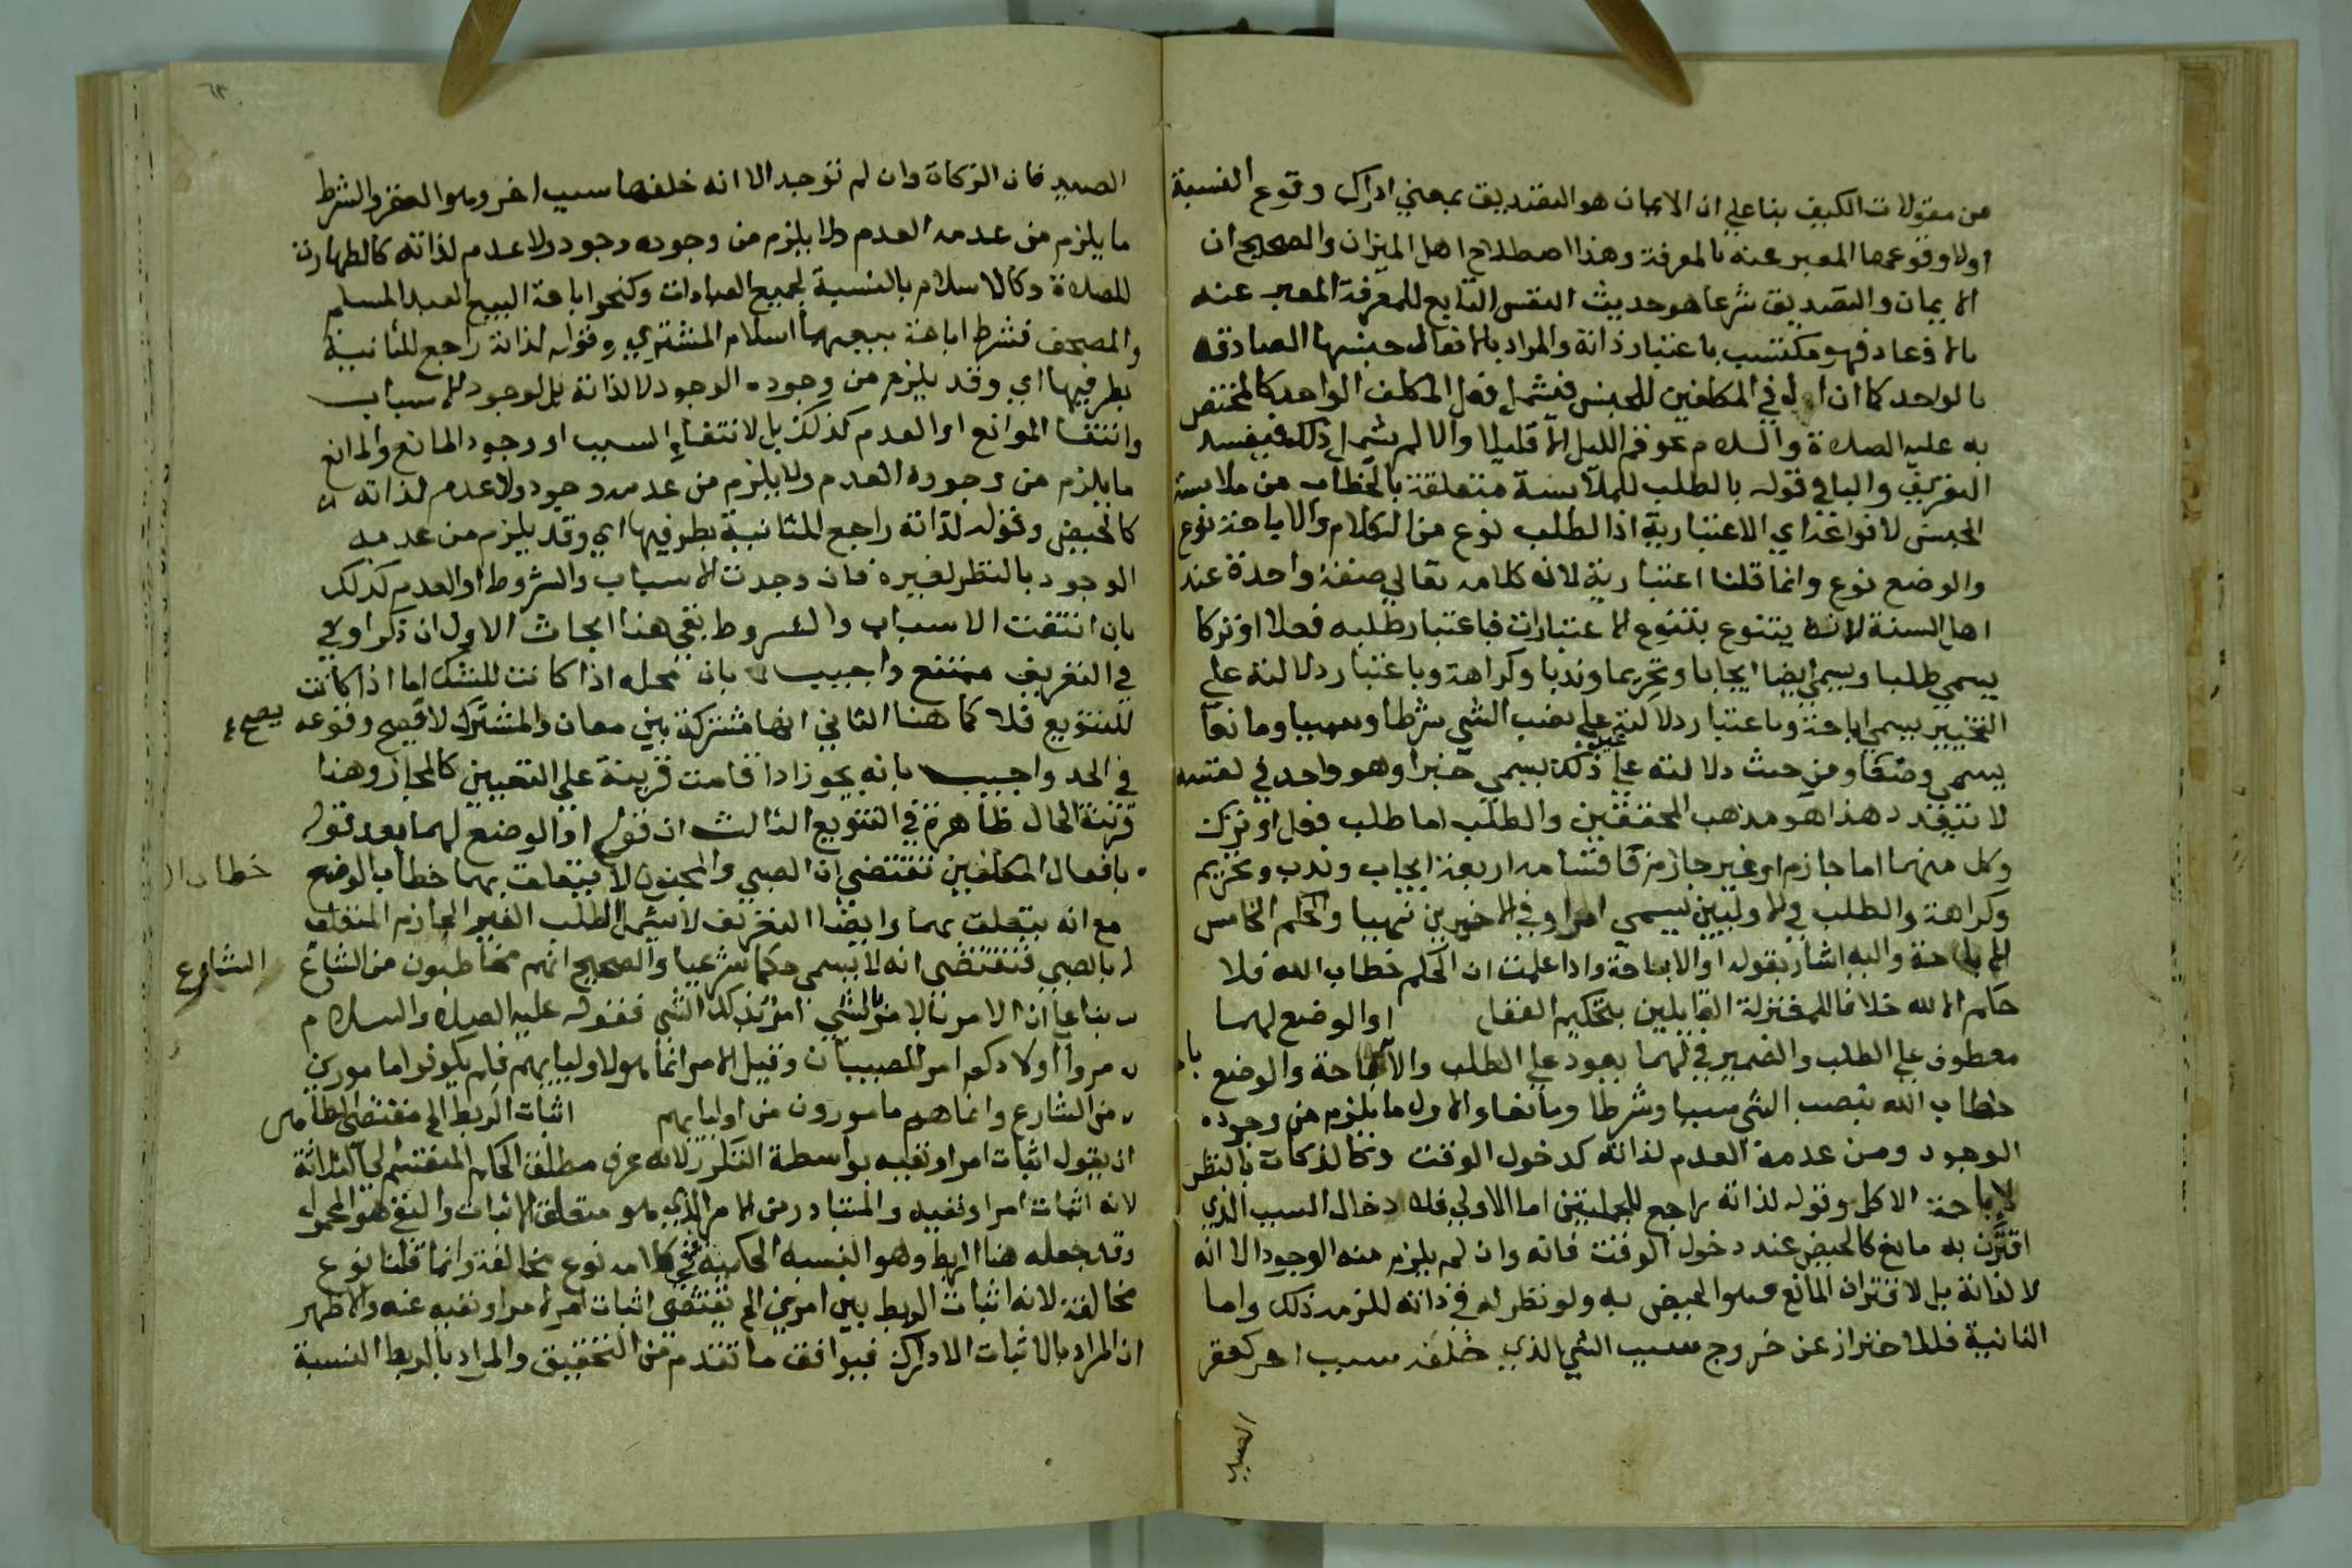 من مقولات الكيف بنا علي ان الايمان هو التصديق بمعني ادراك وقوع النسبة
اولا وقوعها المعبر عنه بالمعرفة وهذا اصطلاح اهل الميزان والصحيح ان
الايمان والتصديق شرعا هو حديث النفس التابع للمعرفة المعبر عنه
بالاذعان فهو مكتسب باعتبار ذاته والمراد بالافعال جنسها الصادقه
بالواحد كما ان ال في المكلفين للجنس فيشمل فعل المكلف الواحد كالمختص
به عليه الصلاة والسلام نحو قم الليل الا قليلا والا لم يشمل ذلك فيفسد
التعريف والبا في قوله بالطلب للملابسة متعلقة بالخطاب من ملابسة
الجنس لانواعه اي الاعتبارية اذ الطلب نوع من الكلام والاباحة نوع
والوضع نوع وانما قلنا اعتبارية لانه كلامه تعالي صفة واحدة عند
اهل السنة لانه يتنوع بتنوع الاعتبارات فباعتبار طلبه فعلا او تركا
يسمي طلبا ويسمي ايضا ايجابا وتحريما وندبا وكراهة وباعتبار دلالته علي
التخيير يسمي اباحة وباعتبار دلالته علي نصب الشي شرطا وسببا ومانعا
يسمي وضعا ومن حيث دلالته علي غير ذلك يسمي خبرا وهو واحد في نفسه
لا تتعدد هذا هو مذهب المحققين والطلب اما طلب فعل او ترك
وكل منهما اما جازم او غير جازم فاقسامه اربعة ايجاب وندب وتحريم
وكراهة والطلب في الاوليين يسمي امرا وفي الاخيرين نهيا والحكم الخامس
الاباحة واليه اشار بقوله او الاباحة واذا علمت ان الحكم خطاب الله فلا
حاكم الا لله خلافا للمعتزلة القايلين بتحكيم العقل او الوضع لهما
معطوف علي الطلب والضمير في لهما يعود علي الطلب والاباحة والوضع
خطاب الله بنصب الشي سببا وشرطا ومانعا والاول ما يلزم من وجوده
الوجود ومن عدمه العدم لذاته كدخول الوقت وكالذكاة بالنظر
لاباحة الاكل وقوله لذاته راجع للجملتين اما الاولي فلادخال السبب الذي
اقترن به مانع كالحيض عند دخول الوقت فانه وان لم يلزم منه الوجود الا انه
لا لذاته بل لاقتران المانع وهو الحيض به ولو نظر له في ذاته للزمه ذلك واما
الثانية فللاحتراز عن خروج سبب الشي الذي خلفه سبب اخر كعقر
الصيد
٦٣
الصيد فان الزكاة وان لم توجد الا انه خلفها سبب اخر وهو العقر والشرط
ما يلزم من عدمه العدم ولا يلزم من وجوده وجود ولا عدم لذاته كالطهارة
للصلاة وكالاسلام بالنسبة لجميع العبادات وكنحو اباحة البيع العبد المسلم
والمصحف فشرط اباحة بيعهما اسلام المشتري وقوله لذاته راجع للثانية
بطرفيها اي وقد يلزم من وجوده الوجود لا لذاته بل لوجود الاسباب
وانتفا الموانع او العدم كذلك بل لانتفاء السبب او وجود المانع والمانع
ما يلزم من وجوده العدم ولا يلزم من عدمه وجود ولا عدم لذاته
كالحيض وقوله لذاته راجع للثانية بطرفيها اي وقد يلزم من عدمه
الوجود بالنظر لغيره فان وجدت الاسباب والشروط او العدم كذلك
بان انتفت الاسباب والشروط بقي هنا ابحاث الاول ان ذكر او في
في التعريف ممتنع واجيب بان محله اذا كانت للشك اما اذا كانت
للتنويع فلا كما هنا الثاني انها مشتركة بين معان والمشترك لا يصح وقوعه يصح
في الحد واجيب بانه يجوز اذا قامت قرينة علي التعيين كالمجاز وهنا
قرينة الحال ظاهرة في التنويع الثالث ان قوله او الوضع لهما بعد قوله
بافعال المكلفين تقتضي ان الصبي والمجنون لا يتعلق بهما خطاب الوضع خطاب
مع انه يتعلق بهما وايضا التعريف لا يشمل الطلب الغير الجازم المتعلق
بالصبي فتقتضي انه لا يسمي حكما شرعيا والصحيح انهم مخاطبون من الشارع الشارع
بنا علي ان الامر بالامر بالشي امر بذلك الشي فقوله عليه الصلاة والسلام
مروا اولادكم امر للصبيان وقيل الامر انما هو لاوليايهم فلم يكونوا مامورين
من الشارع وانما هم مامورون من اوليايهم اثبات الربط الخ مقتضي الظاهر
ان يقول اثبات امر او نفيه بواسطة التكرر لانه عرف مطلق الحكم المنقسم الي الثلاثة
لانه اثبات امر او نفيه والمتبادر من الامر الذي هو متعلق الاثبات والنفي هو المحمول
وقد جعله هنا الربط وهو النسبه الحكمية ففي كلامه نوع مخالفة وانما قلنا نوع
مخالفة لانه اثبات الربط بين امرين الخ يقتضي اثبات امر لامر او نفيه عنه والاظهر
ان المراد بالاثبات الادراك فيوافق ما تقدم من التحقيق والمراد بالربط النسبة